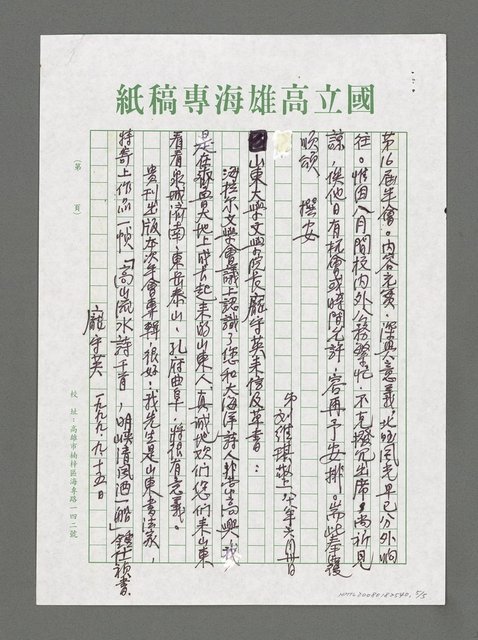 國立高雄海專稿紙
第16屆年會。內容充實，深具意義。北國風光早已分外嚮
往。惟因八月間校內外公務繁忙，不克撥冗出席，尚祈見
諒，俟他日有機會或時間允許，容再予安排。耑此奉復
順頌 撰安
弟 劉維琪敬 八八年六月廿日
山東大學文學院長龐守英來信及草書：
海拉尔文學會議上認識了您和大海洋詩人群，非常高興，我
是在齊魯大地上成長起來的山東人，真誠地歡迎您們來山東
看看泉城濟南，東岳泰山、孔府曲阜，將很有意義。
貴刊出版本次年會專輯，很好！我先生是山東書法家，
特寄上作品一幀「高山流水詩千首，明峽清風酒一船」鍾社福書
龐守英 一九九九、九、十五日
（第 頁）
校址：高雄市楠梓區海專路一四二號
NMTL20080182540, 5/5